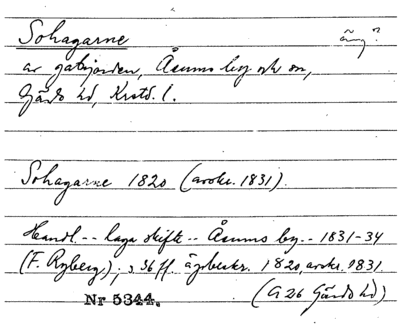 Sohagarne äng?
av gatejorden, Åsums by och sn,
Gärds hd, Krstd. l.
Sohagarne 1820 (avskr. 1831).
Handl. -- laga skifte -- Åsums by. - 1831-34
(F. Ryberg,); s. 36 ff. ägobeskr. 1820, avskr. 1831.
(G 26 Gärds hd)
Nr 5344.